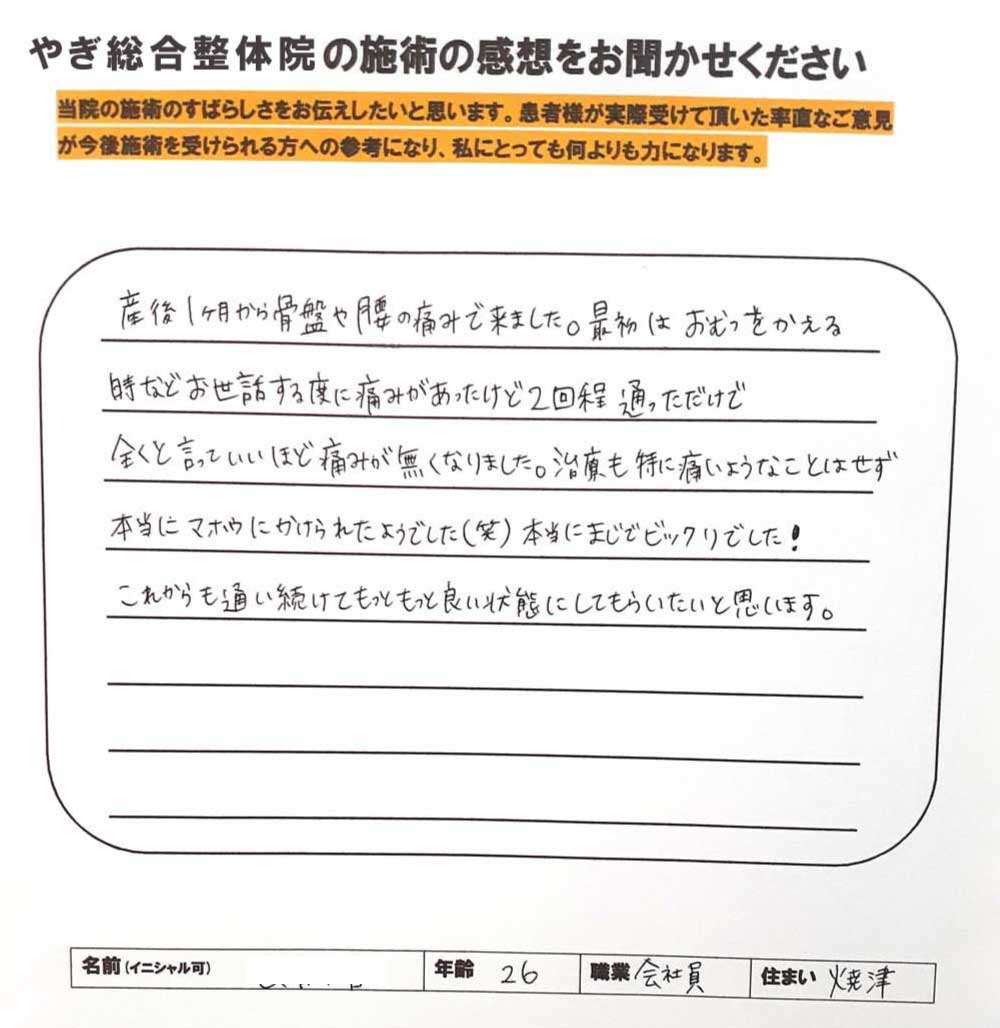 やぎ総合整体院の施術の感想をお聞かせください
当院の施術のすばらしさをお伝えしたいと思います。患者様が実際受けて頂いた率直なご意見
が今後施術を受けられる方への参考になり、私にとっても何よりも力になります。
産後1ヶ月から骨盤や腰の痛みで来ました。最初はおむつをかえる
時などお世話する度に痛みがあったけど2回程通っただけで
全くと言っていいほど痛みが無くなりました。治療も特に痛いようなことはせず
本当にマホウにかけられたようでした(笑)本当にまじでビックリでした!
これからも通い続けてもっともっと良い状態にしてもらいたいと思います。
名前(イニシャル可) 年齢 26 職業 会社員 住まい 焼津